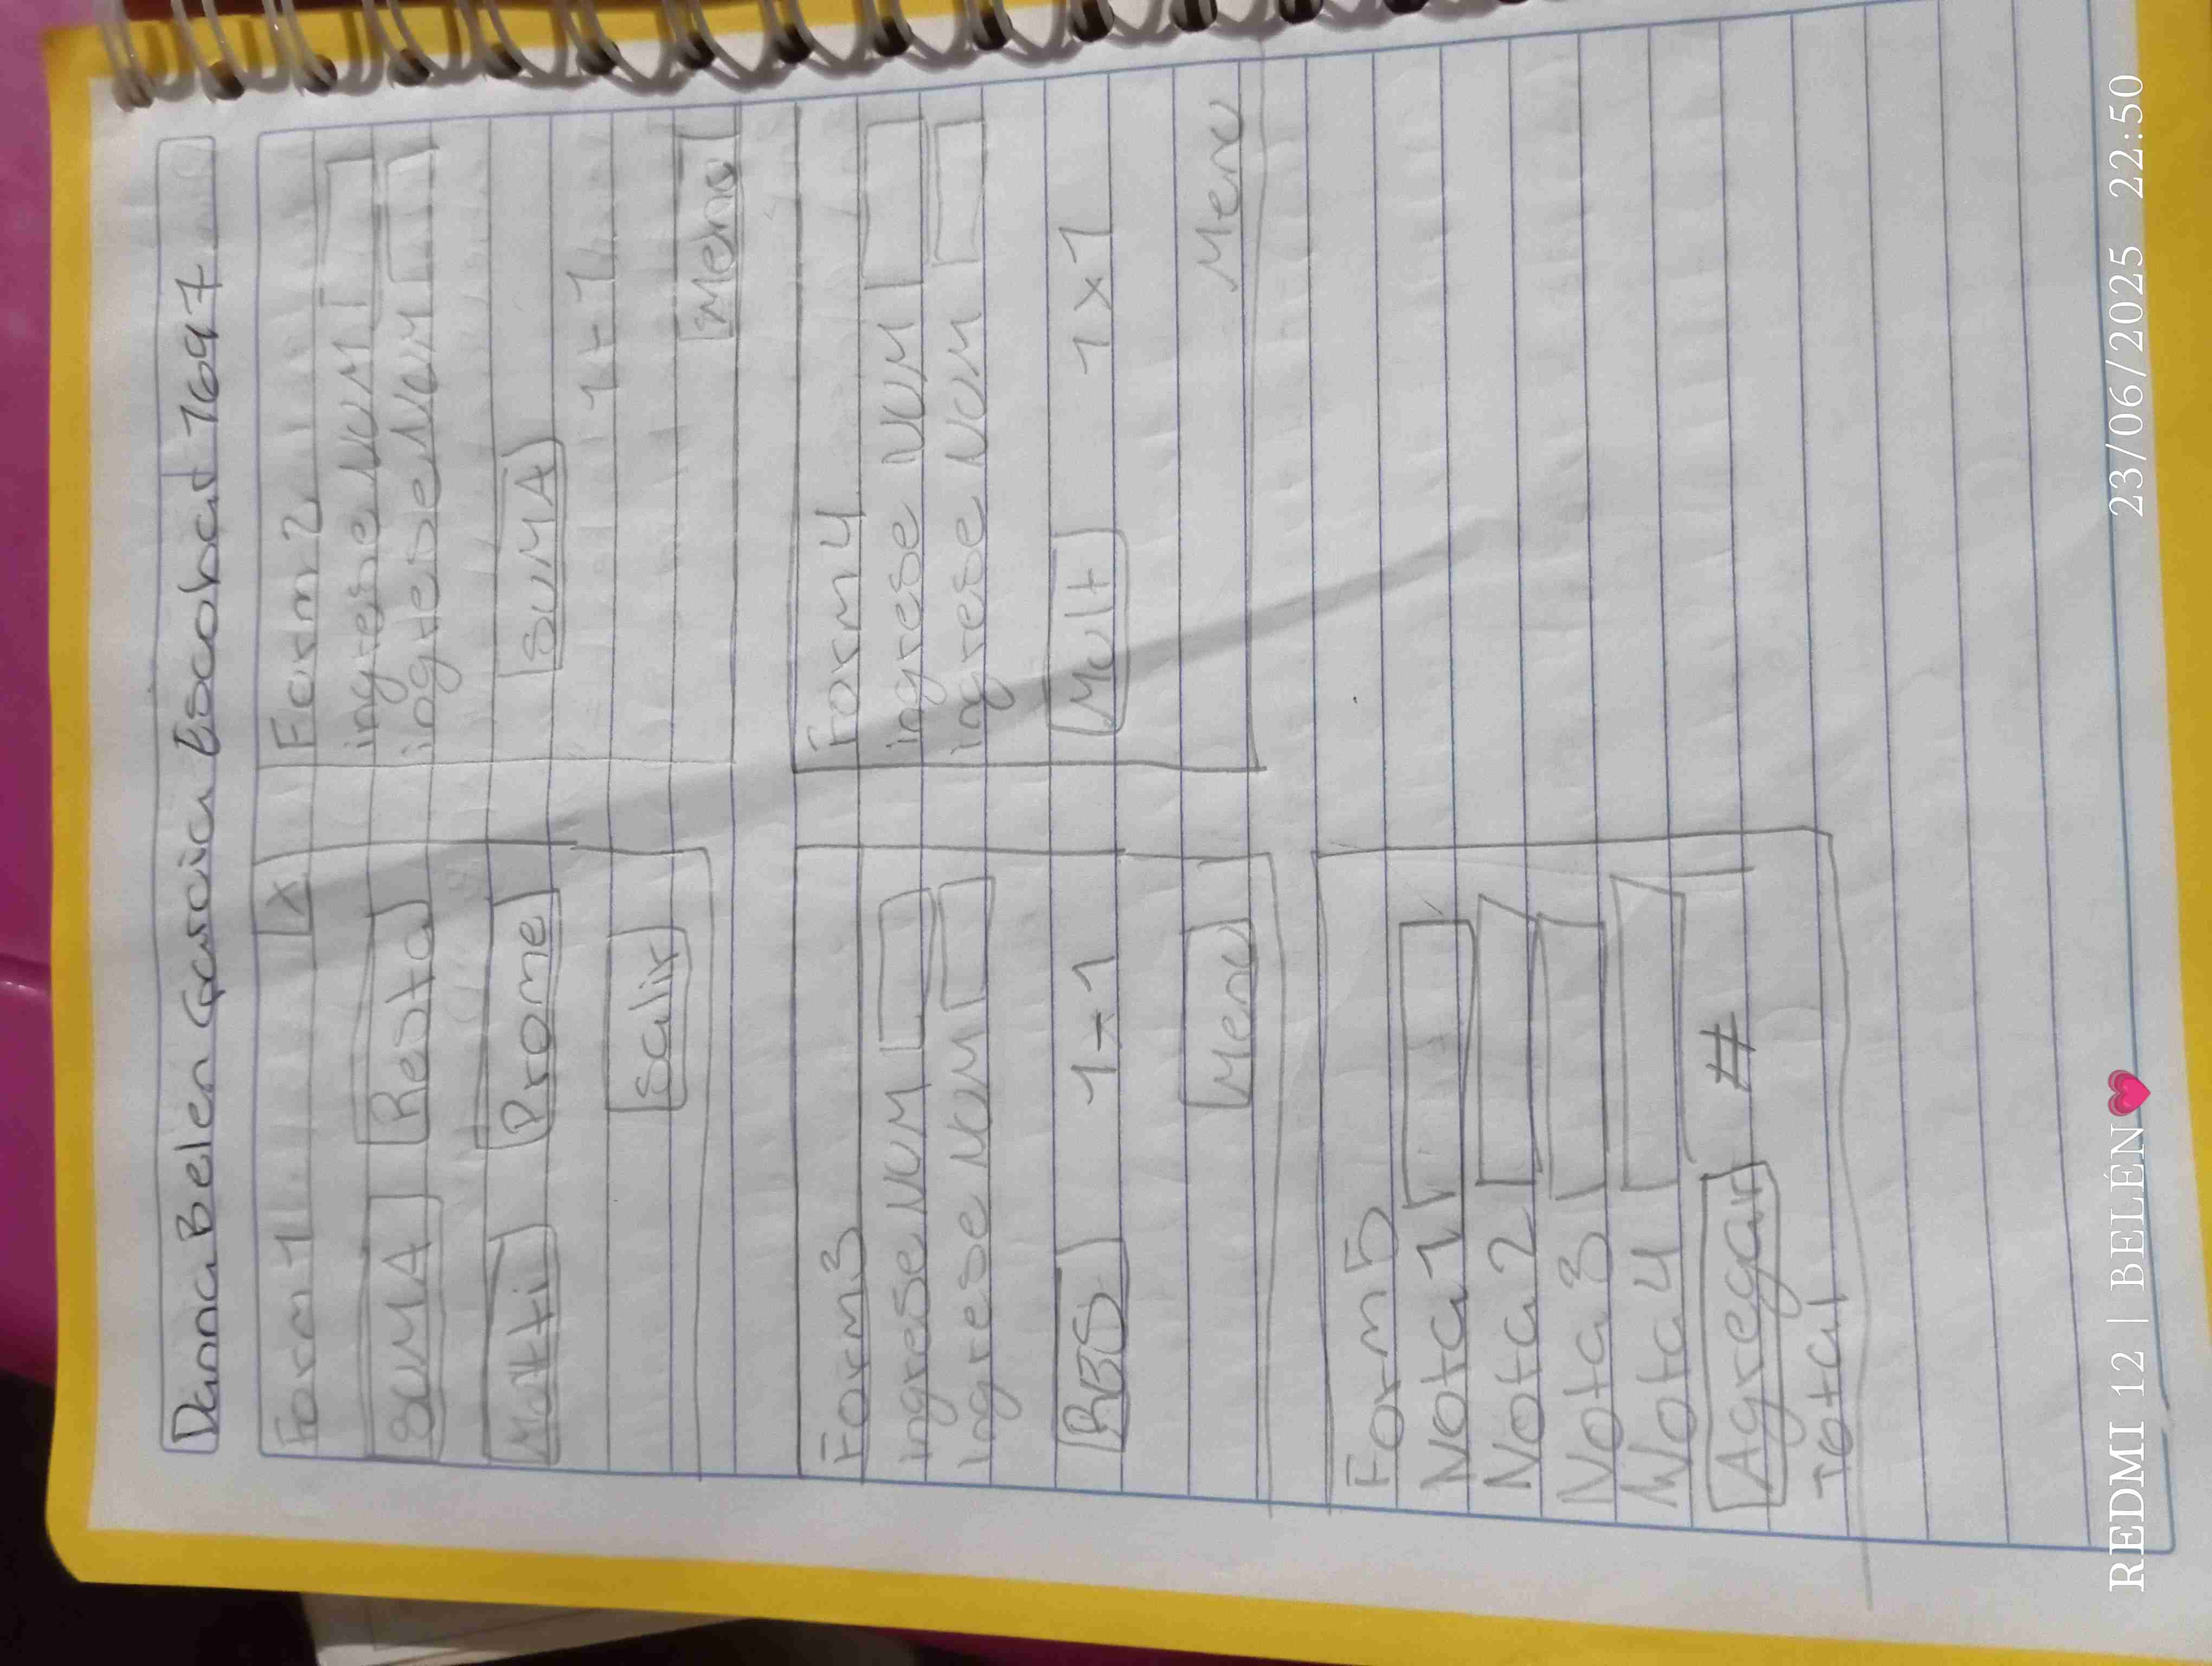 Danna Belen Garcia Escobar 1697
Form 1 X
SUMA Resta
Multi Prome
Salir
Form 2
ingrese NUM
ingrese NUM
SUMA
1+1
Menu
Form 3
ingrese NUM
ingrese NUM
RES
Menu
Form 4
ingrese NUM
ingrese NUM
Mult 1x1
Menu
Form 5
Nota 1
Nota 2
Nota 3
Nota 4
Agregar #
Total
REDMI 12 | BELÉN💗 23/06/2025 22:50